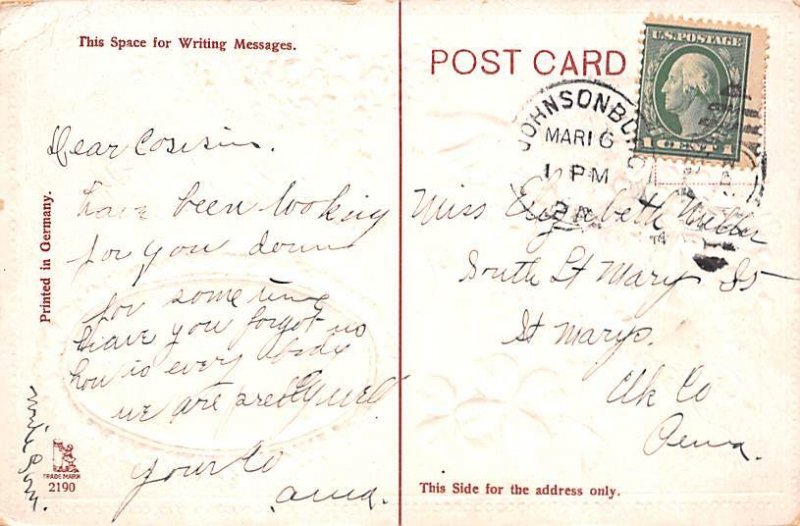 This Space for Writing Messages.
Dear Cosisin.
have been looking
for you down
for some time
have you forgot us
how is every body
we are pretty well
your Co
Printed in Germany.
TRADE MARK
2190
POST CARD
U.S. POSTAGE
1 CENT 1
JOHNSONBURG
MAR 16
1 PM
PA.
Miss Elizabeth Miller
South St Marys St
St marys.
Elk Co
Penna.
This Side for the address only.